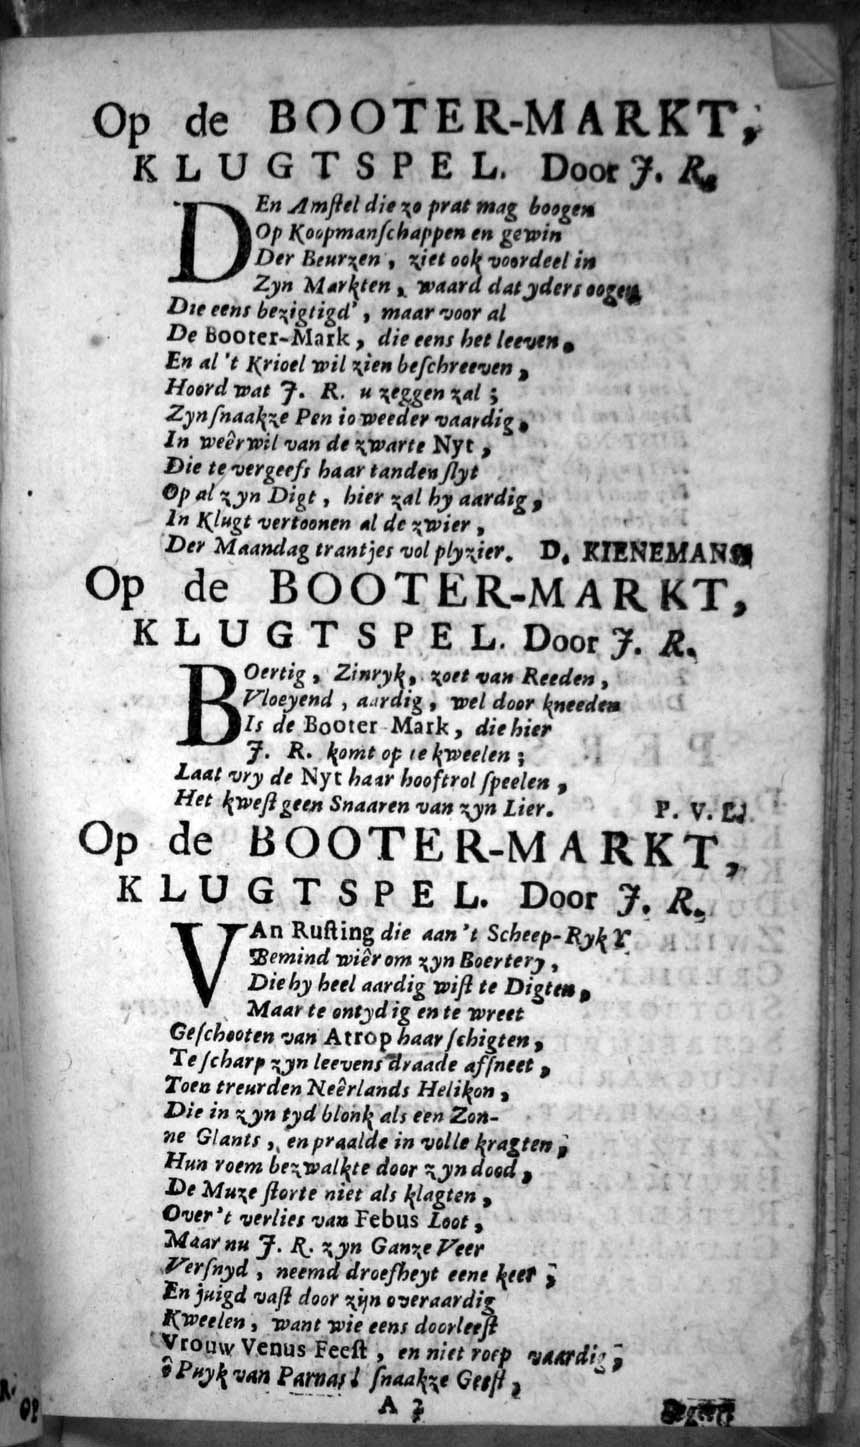 Op de BOOTER-MARKT,
KLUGTSPEL. Door J. R.
DEn Amstel die zo prat mag boogen
Op Koopmanschappen en gewin
Der Beurzen, ziet ook voordeel in
Zyn Markten, waard dat yders oogen
Die eens bezigtigd', maar voor al
De Booter-Mark, die eens het leeven,
En al 't Krioel wil zien beschreeven,
Hoord wat J. R. u zeggen zal;
Zyn snaakze Pen io weeder vaardig,
In weêrwil van de zwarte Nyt,
Die te vergeefs haar tanden slyt
Op al zyn Digt, hier zal hy aardig,
In Klugt vertoonen al de zwier,
Der Maandag trantjes vol plyzier. D. KIENEMANS
Op de BOOTER-MARKT,
KLUGTSPEL. Door J. R.
BOertig, Zinryk, zoet van Reeden,
Vloeyend, aardig, wel door kneeden
Is de Booter Mark, die hier
J. R. komt op te kweelen;
Laat vry de Nyt haar hooft rol speelen,
Het kwest geen Snaaren van zyn Lier. P. V.
Op de BOOTER-MARKT,
KLUGTSPEL. Door J. R.
VAn Rusting die aan 't Scheep-Ryk Y
Bemind wiêr om zyn Boertery,
Die hy heel aardig wist te Digten,
Maar te ontydig en te wreet
Geschooten van Atrop haar schigten,
Te scharp zyn leevens draade afsneet,
Toen treurden Neêrlands Helikon,
Die in zyn tyd blonk als een Zon-
ne Glants, en praalde in volle kragten;
Hun roem bezwalkte door zyn dood,
De Muze storte niet als klagten,
Over 't verlies van Febus Loot,
Maar nu J. R. zyn Ganze Veer
Versnyd, neemd droefheyt eene keer;
En juigd vast door zijn overaardig
Kweelen, want wie eens doorleest
Vrouw Venus Feest, en niet roep vaardig;
ô Puyk van Parnas! snaakze Geest,
A 3